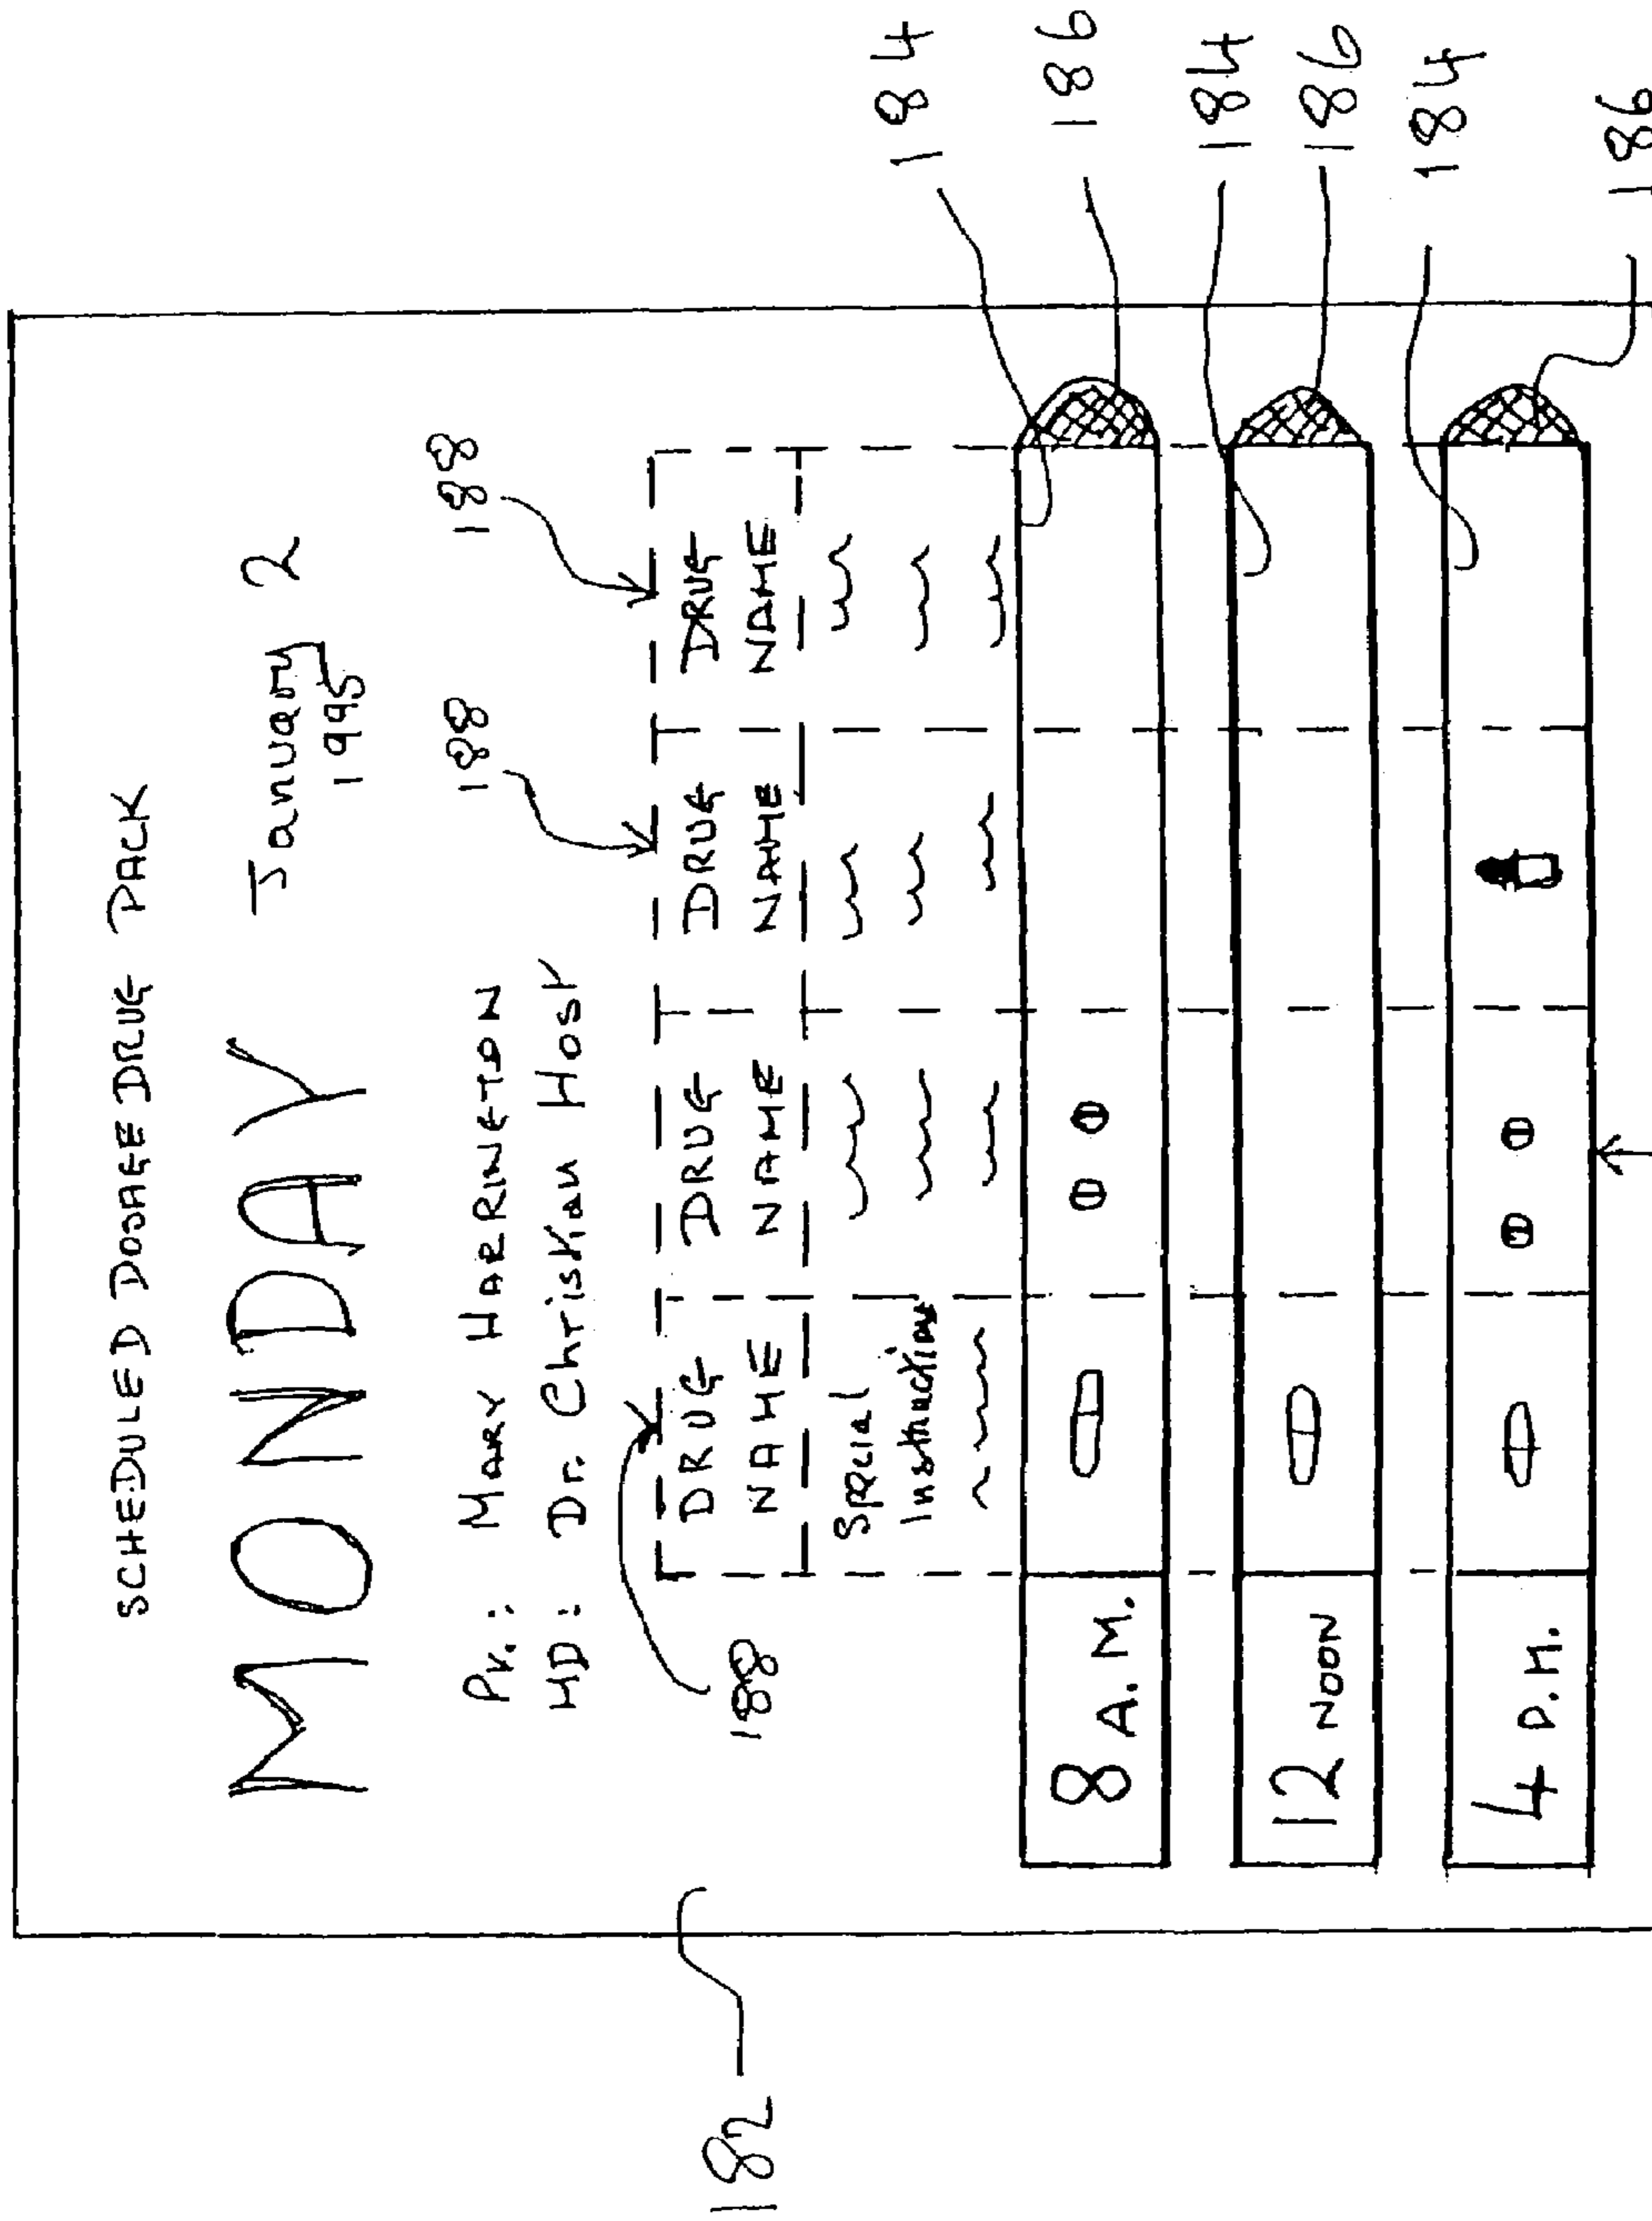 SCHEDULED DOSAGE DRUG PACK
MONDAY January 2
1995
Pt.: MARY HARRINGTON
MD: Dr. Christian Host
188 188 188
DRUG NAME
DRUG NAME
DRUG NAME
DRUG NAME
Special Instructions
8 A.M.
12 NOON
4 P.M.
182
184
186
184
186
184
186